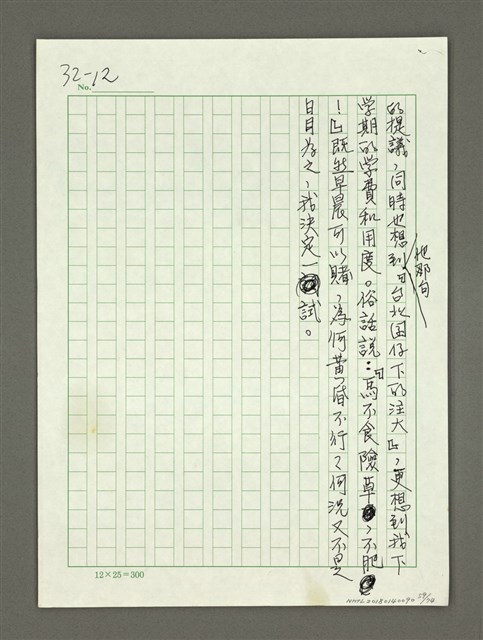 32-12
No.
的提議，同時也想到他那句「台北囝仔下的注大」，更想到我下
学期的学費和用度。俗話説：「馬不食險草，不肥
！」既然早晨可以賭，為何黄昏不行？何况又不是
日日為之，我決定一試。
12×25=300